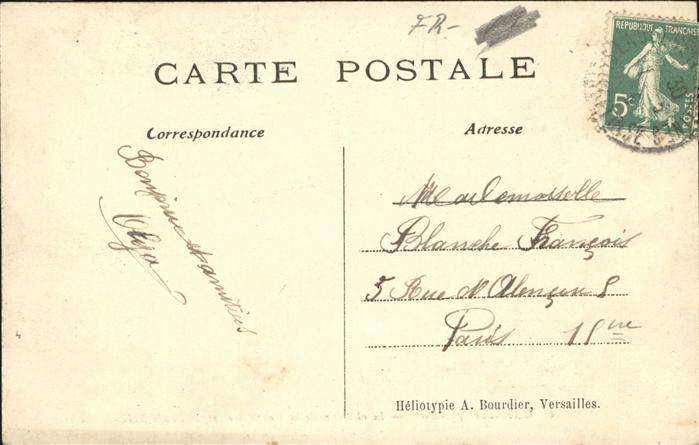 FR-
CARTE POSTALE
REPUBLIQUE FRANÇAISE
5c
POSTES
Correspondance
Adresse
Bonjour et amitiés
Olga
Mademoiselle
Blanche François
5 Rue d'Alençon 5
Paris 15eme
Héliotypie A. Bourdier, Versailles.